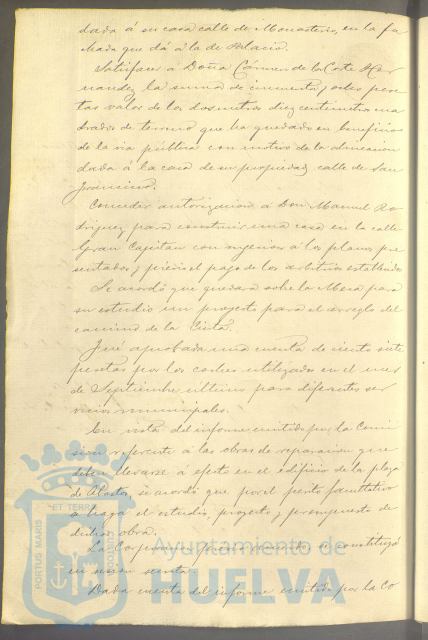 dada á su casa calle de Monasterio, en la fa
chada que dá á la de Palacio.
Satisfacer á Doña Cármen de la Corte Her
nandez la suma de cincuenta y ocho pese
tas valor de los dos metros diez centimetros cua
drados de terreno que ha quedado en beneficio
de la via pública con motivo de la alineacion
dada á la casa de su propiedad calle de San
Francisco.
Conceder autorizacion á Don Manuel Ro
driguez para construir una casa en la calle
Gran Capitan con sugecion á los planos pre
sentados y previo el pago de los arbitrios establecidos
Se acordó que quedara sobre la Mesa para
su estudio un proyecto para el arreglo del
camino de la Cinta.
Fué aprobada una cuenta de ciento siete
pesetas por los coches utilizados en el mes
de Septiembre último para diferentes ser
vicios municipales.
En vista del informe emitido por la Comi
sion referente á las obras de reparacion que
deben llevarse á efecto en el edificio de la plaza
de Abastos, se acordó que por el perito facultativo
se haga el estudio, proyecto y presupuesto de
dichas obras.
La Corporacion se constituyó
en sesion secreta
Dada cuenta del informe emitido por la Co
PORTUS MARIS
ET TERRA
CUSTODIA
Ayuntamiento de
HUELVA